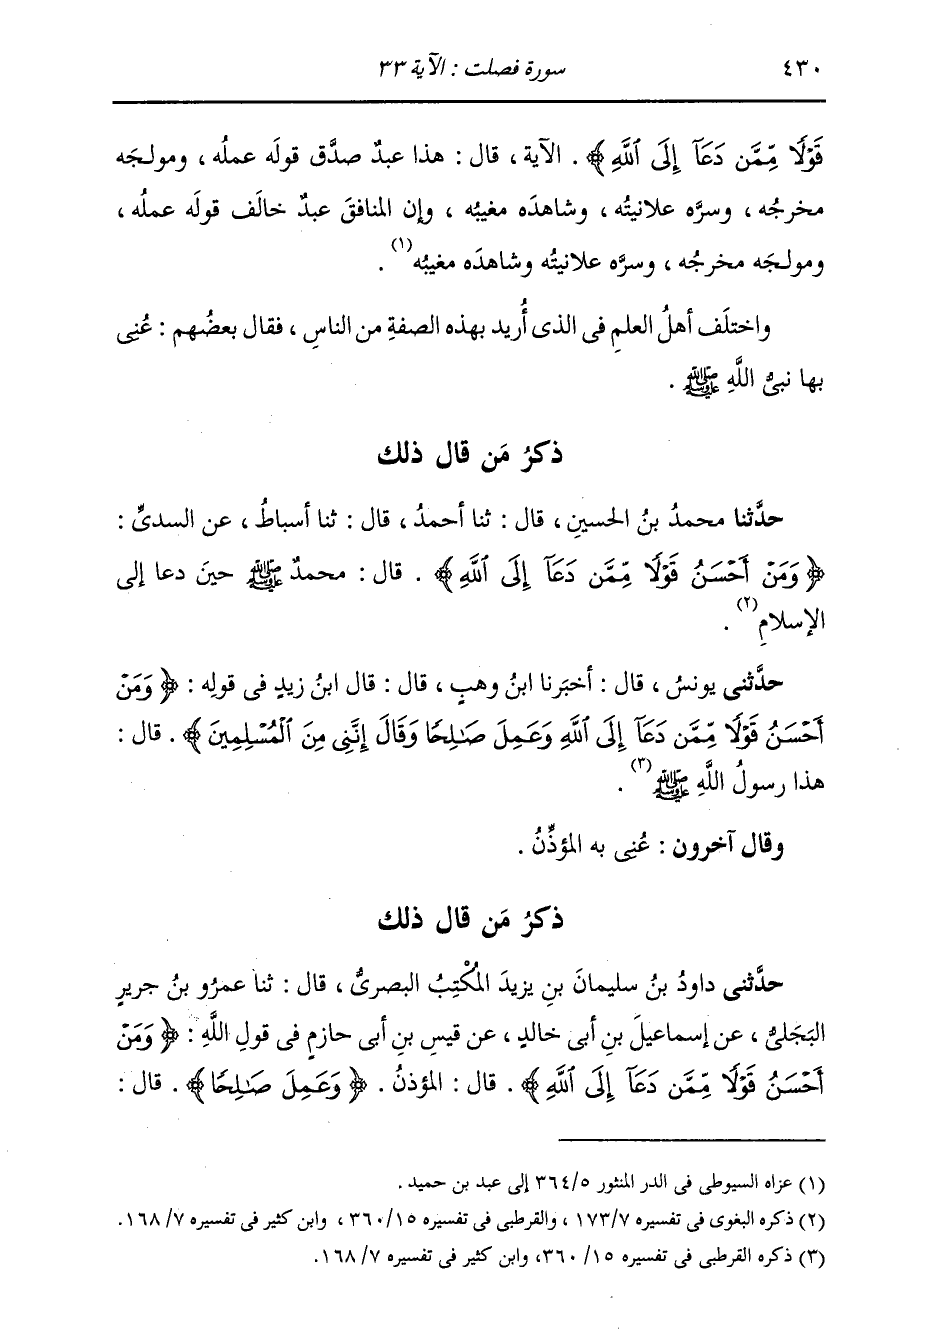 ٤٣٠
سورة فصلت : الآية ٣٣
قَوْلًا مِّمَّن دَعَآ إِلَى ٱللَّهِ ﴾ . الآية ، قال : هذا عبدٌ صدَّق قولَه عملُه ، ومولجَه
مخرجُه ، وسرَّه علانيتُه ، وشاهدَه مغيبُه ، وإن المنافقَ عبدٌ خالَف قولَه عملُه ،
ومولجَه مخرجُه ، وسرَّه علانيتُه وشاهدَه مغيبُه(١) .
واختلَف أهلُ العلمِ فى الذى أُريد بهذه الصفةِ من الناسِ ، فقال بعضُهم : عُنِى
بها نبىُّ اللَّهِ ﷺ .
ذكرُ مَن قال ذلك
حدَّثنا محمدُ بنُ الحسينِ ، قال : ثنا أحمدُ ، قال : ثنا أسباطُ ، عن السدىِّ :
﴿ وَمَنْ أَحْسَنُ قَوْلًا مِّمَّن دَعَآ إِلَى ٱللَّهِ ﴾ . قال : محمدٌ ﷺ حينَ دعا إلى
الإسلامِ(٢) .
حدَّثنى يونسُ ، قال : أخبَرنا ابنُ وهبٍ ، قال : قال ابنُ زيدٍ فى قولِه : ﴿ وَمَنْ
أَحْسَنُ قَوْلًا مِّمَّن دَعَآ إِلَى ٱللَّهِ وَعَمِلَ صَـٰلِحًا وَقَالَ إِنَّنِى مِنَ ٱلْمُسْلِمِينَ ﴾ . قال :
هذا رسولُ اللَّهِ ﷺ(٣) .
وقال آخرون : عُنِى به المؤذِّنُ .
ذكرُ مَن قال ذلك
حدَّثنى داودُ بنُ سليمانَ بنِ يزيدَ المُكْتِبُ البصرىُّ ، قال : ثنا عمرُو بنُ جريرٍ
البَجَلىُّ ، عن إسماعيلَ بنِ أبى خالدٍ ، عن قيسِ بنِ أبى حازمٍ فى قولِ اللَّهِ : ﴿ وَمَنْ
أَحْسَنُ قَوْلًا مِّمَّن دَعَآ إِلَى ٱللَّهِ ﴾ . قال : المؤذنُ . ﴿ وَعَمِلَ صَـٰلِحًا ﴾ . قال :
(١) عزاه السيوطى فى الدر المنثور ٣٦٤/٥ إلى عبد بن حميد .
(٢) ذكره البغوى فى تفسيره ١٧٣/٧ ، والقرطبى فى تفسيره ٣٦٠/١٥ ، وابن كثير فى تفسيره ١٦٨/٧ .
(٣) ذكره القرطبى فى تفسيره ٣٦٠/١٥، وابن كثير فى تفسيره ١٦٨/٧ .